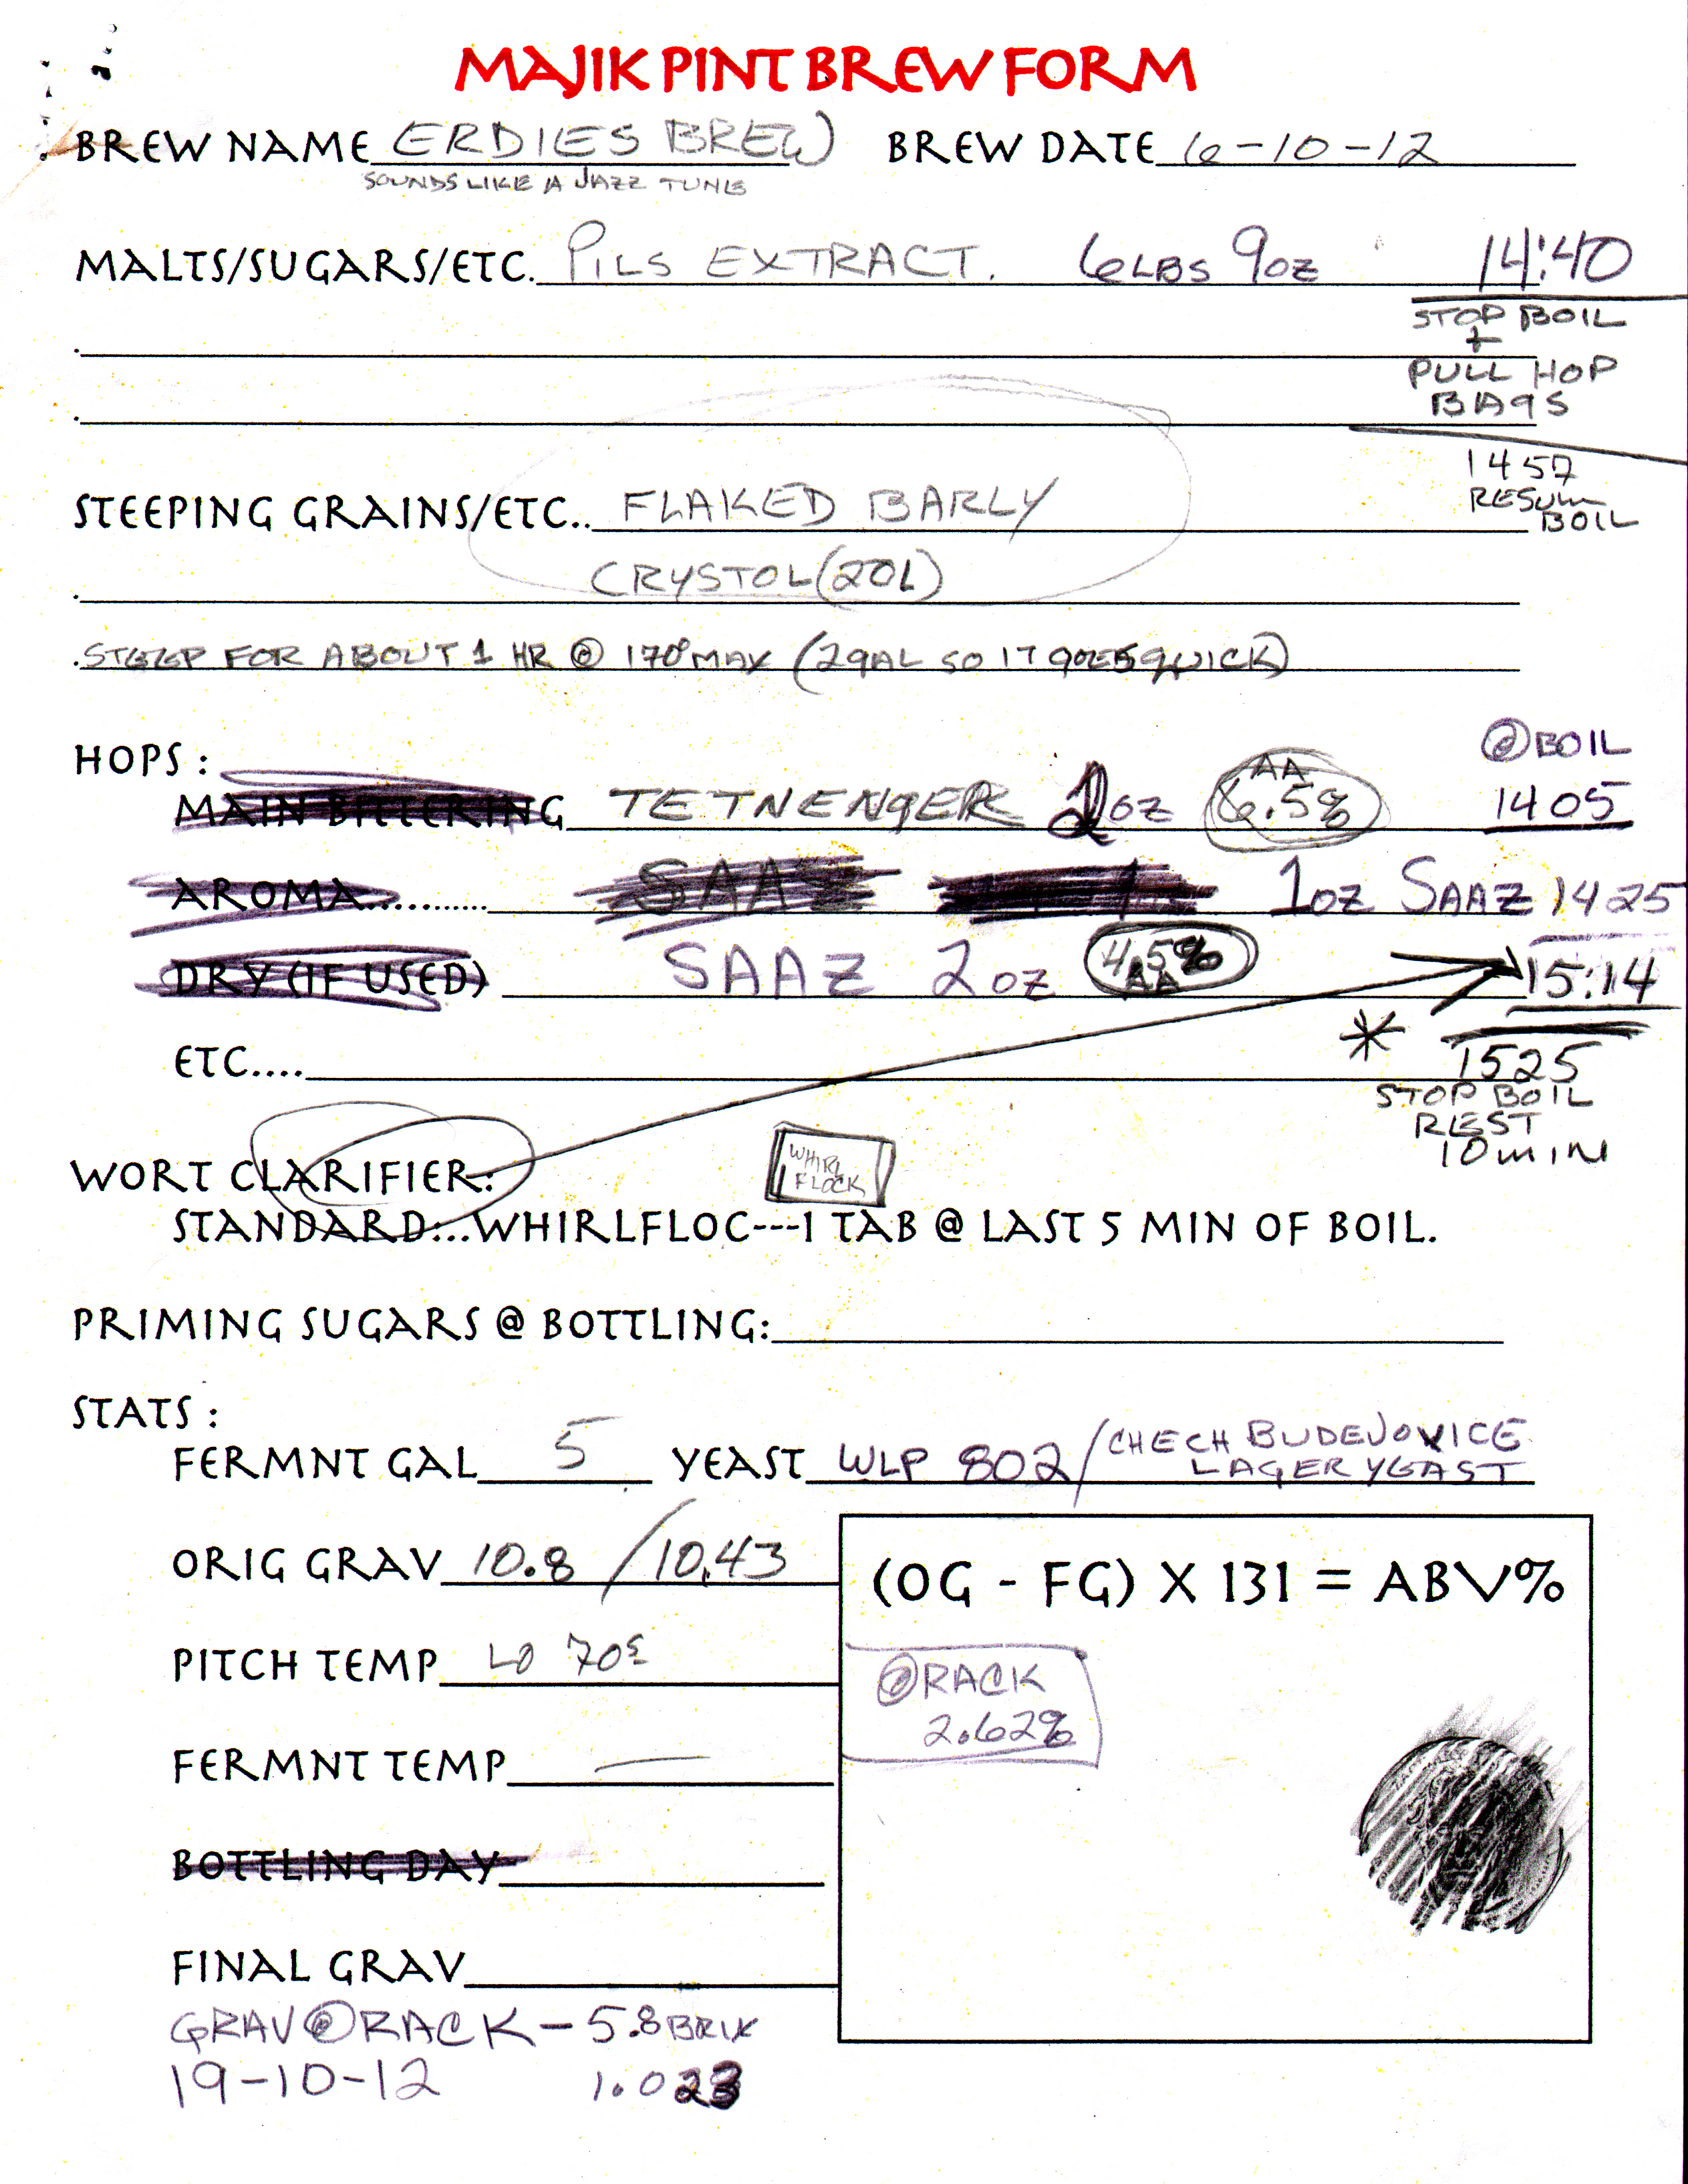 MAJIK PINT BREW FORM
BREW NAME ERDIES BREW BREW DATE 6-10-12
SOUNDS LIKE A JAZZ TUNE
MALTS/SUGARS/ETC. PILS EXTRACT. 6LBS 9OZ 14:40
STOP BOIL
+
PULL HOP
BAGS
1457
RESUM
BOIL
STEEPING GRAINS/ETC.. FLAKED BARLY
CRYSTOL(20L)
STEEP FOR ABOUT 1 HR @ 170° MAX (2GAL SO IT GOES QUICK)
HOPS :
@BOIL
MAIN BITTERING TETNENGER OZ AA 6.5% 1405
AROMA............ SAAZ 1OZ SAAZ 1425
DRY (IF USED) SAAZ 2OZ 4.5% AA 15:14
ETC.... * 1525
STOP BOIL
REST
10 MIN
WORT CLARIFIER:
WHIRL
FLOCK
STANDARD:...WHIRLFLOC---1 TAB @ LAST 5 MIN OF BOIL.
PRIMING SUGARS @ BOTTLING:
STATS :
FERMNT GAL 5 YEAST WLP 802/CHECH BUDEJOVICE
LAGER YEAST
ORIG GRAV 10.8 / 10.43
(OG - FG) X 131 = ABV%
PITCH TEMP LO 70s
@RACK
2.62%
FERMNT TEMP —
BOTTLING DAY
FINAL GRAV
GRAV@RACK - 5.8 BRIX
19-10-12 1.023